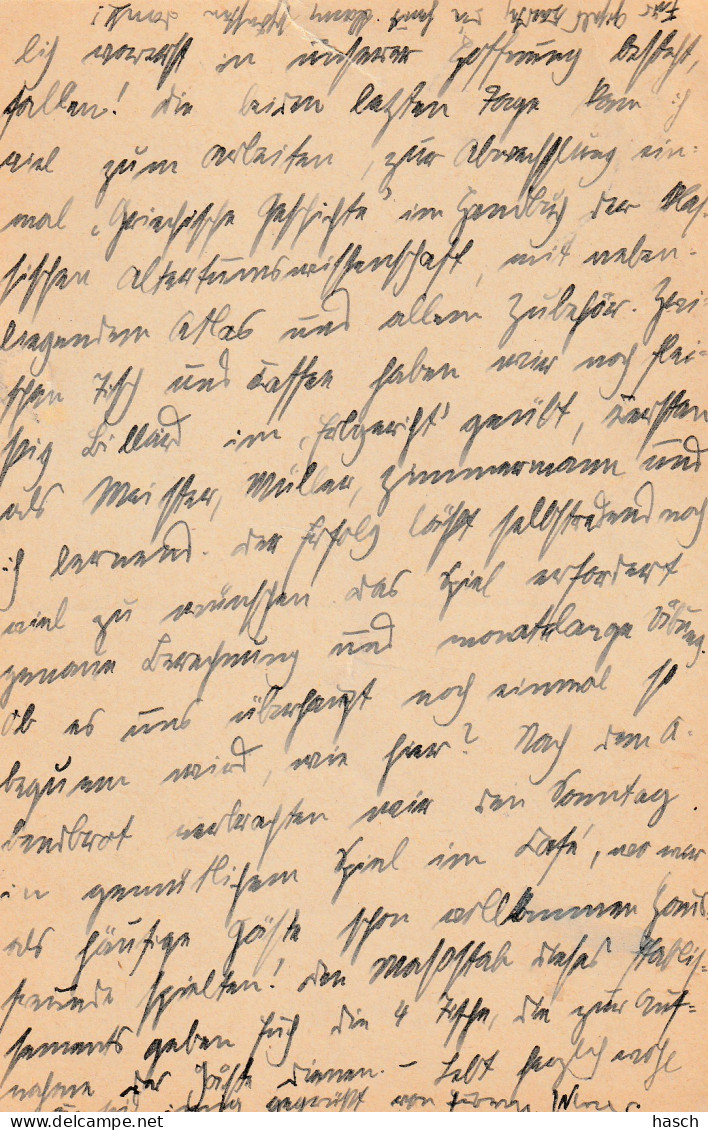 lich vorerst in unserer Hoffnung besteht,
gallen! Die beiden letzten Tage kam ich
viel zum Arbeiten, zur Abwechslung ein-
mal „Griechische Geschichte" im Handbuch der Klas-
sischen Altertumswissenschaft, mit neben-
liegendem Atlas und allem Zubehör. Zwi-
schen Tisch und Kaffee haben wir noch flei-
ßig Billard im „Erbgericht" geübt,
als Meister, Müller, Zimmermann und
ich lernend. Der Erfolg läßt selbstredend noch
viel zu wünschen das Spiel erfordert
genaue Berechnung und monatelange Übung.
Ob es uns überhaupt noch einmal so
bequem wird, wie hier? Nach dem A-
bendbrot verbrachten wir den Sonntag
in gemütlichem Spiel im Café, wo wir
als häufige Gäste schon willkommen Haus-
freunde spielten! Den Maßstab dieses Etablis-
sements geben Euch die 4 Tische, die zur Auf-
nahme der Gäste dienen. – Lebt herzlich wohl
gegrüßt von Eurem Werner.
hasch